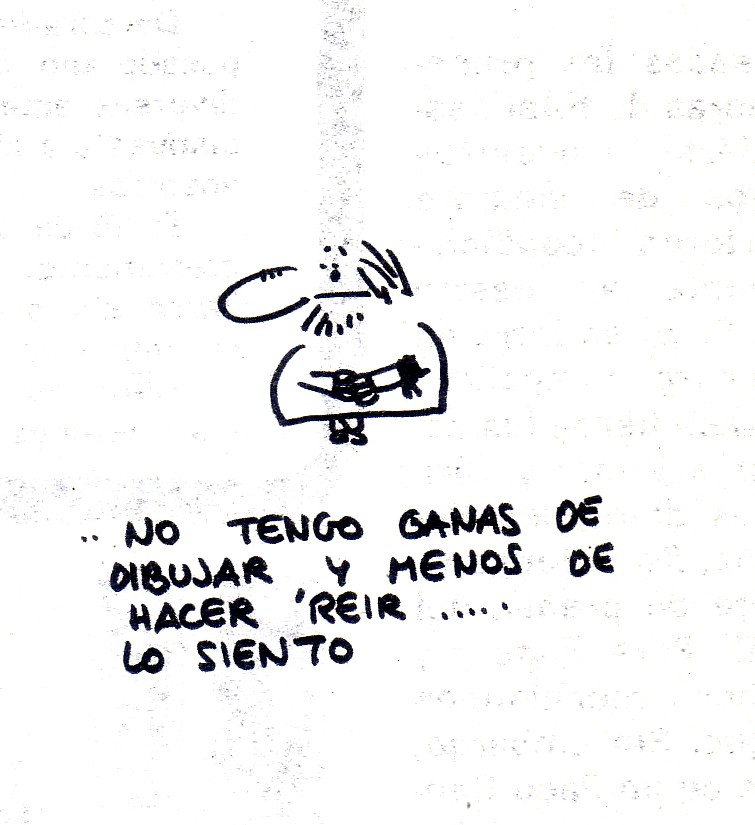 .. NO TENGO GANAS DE
DIBUJAR Y MENOS DE
HACER 'REIR .....
LO SIENTO